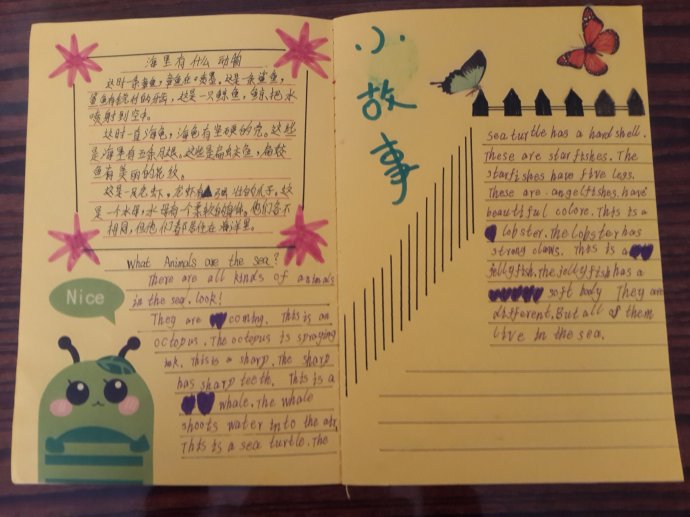 海里有什么动物
这时一条章鱼,章鱼在喷墨。这是一条鲨鱼,
鲨鱼有锋利的牙齿,这是一只鲸鱼,鲸把水
喷射到空中。
这时一直海龟,海龟有坚硬的壳。这些
是海里有五条
鱼有美丽的花纹。
这是一只老虾,龙虾有 壮的爪子,这
是一个水母,水母有一个柔软的身体。他们各不
相同,但他们都居住在海洋里。
What Animals are the sea?
There are all kinds of animals
in the sea. look!
They are coming. This is an
octopus. The octopus is spraying
ink. This is a sharp. The sharp
has sharp teeth. This is a
whale. The whale
shoots water into the air.
This is a sea turtle. The
Nice
小故事
sea turtle has a hard shell.
These are starfishes. The
starfishes have five legs.
These are angelfishes. have
beautiful colore. This is a
lobster. The lobster has
strong claws. This is a
jellyfish. The jellyfish has a
soft body They are
different. But all of them
live in the sea.